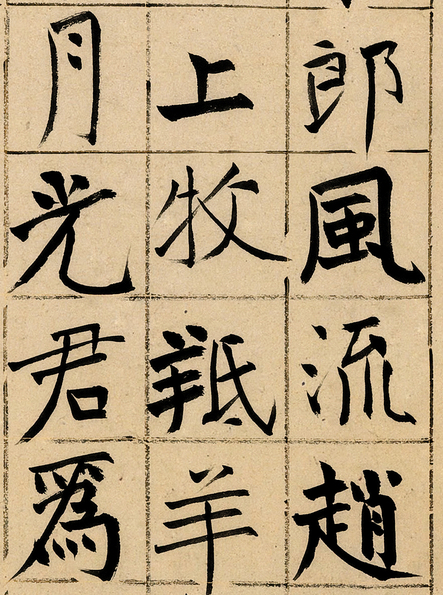 郎風流趙
上牧羝羊
月光君為